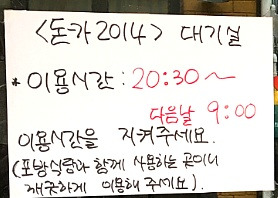 <돈가2014> 대기실
* 이용시간 : 20:30~
다음날 9:00
이용시간을 지켜주세요.
(포방식당과 함께 사용하는 곳이니
깨끗하게 이용해 주세요).